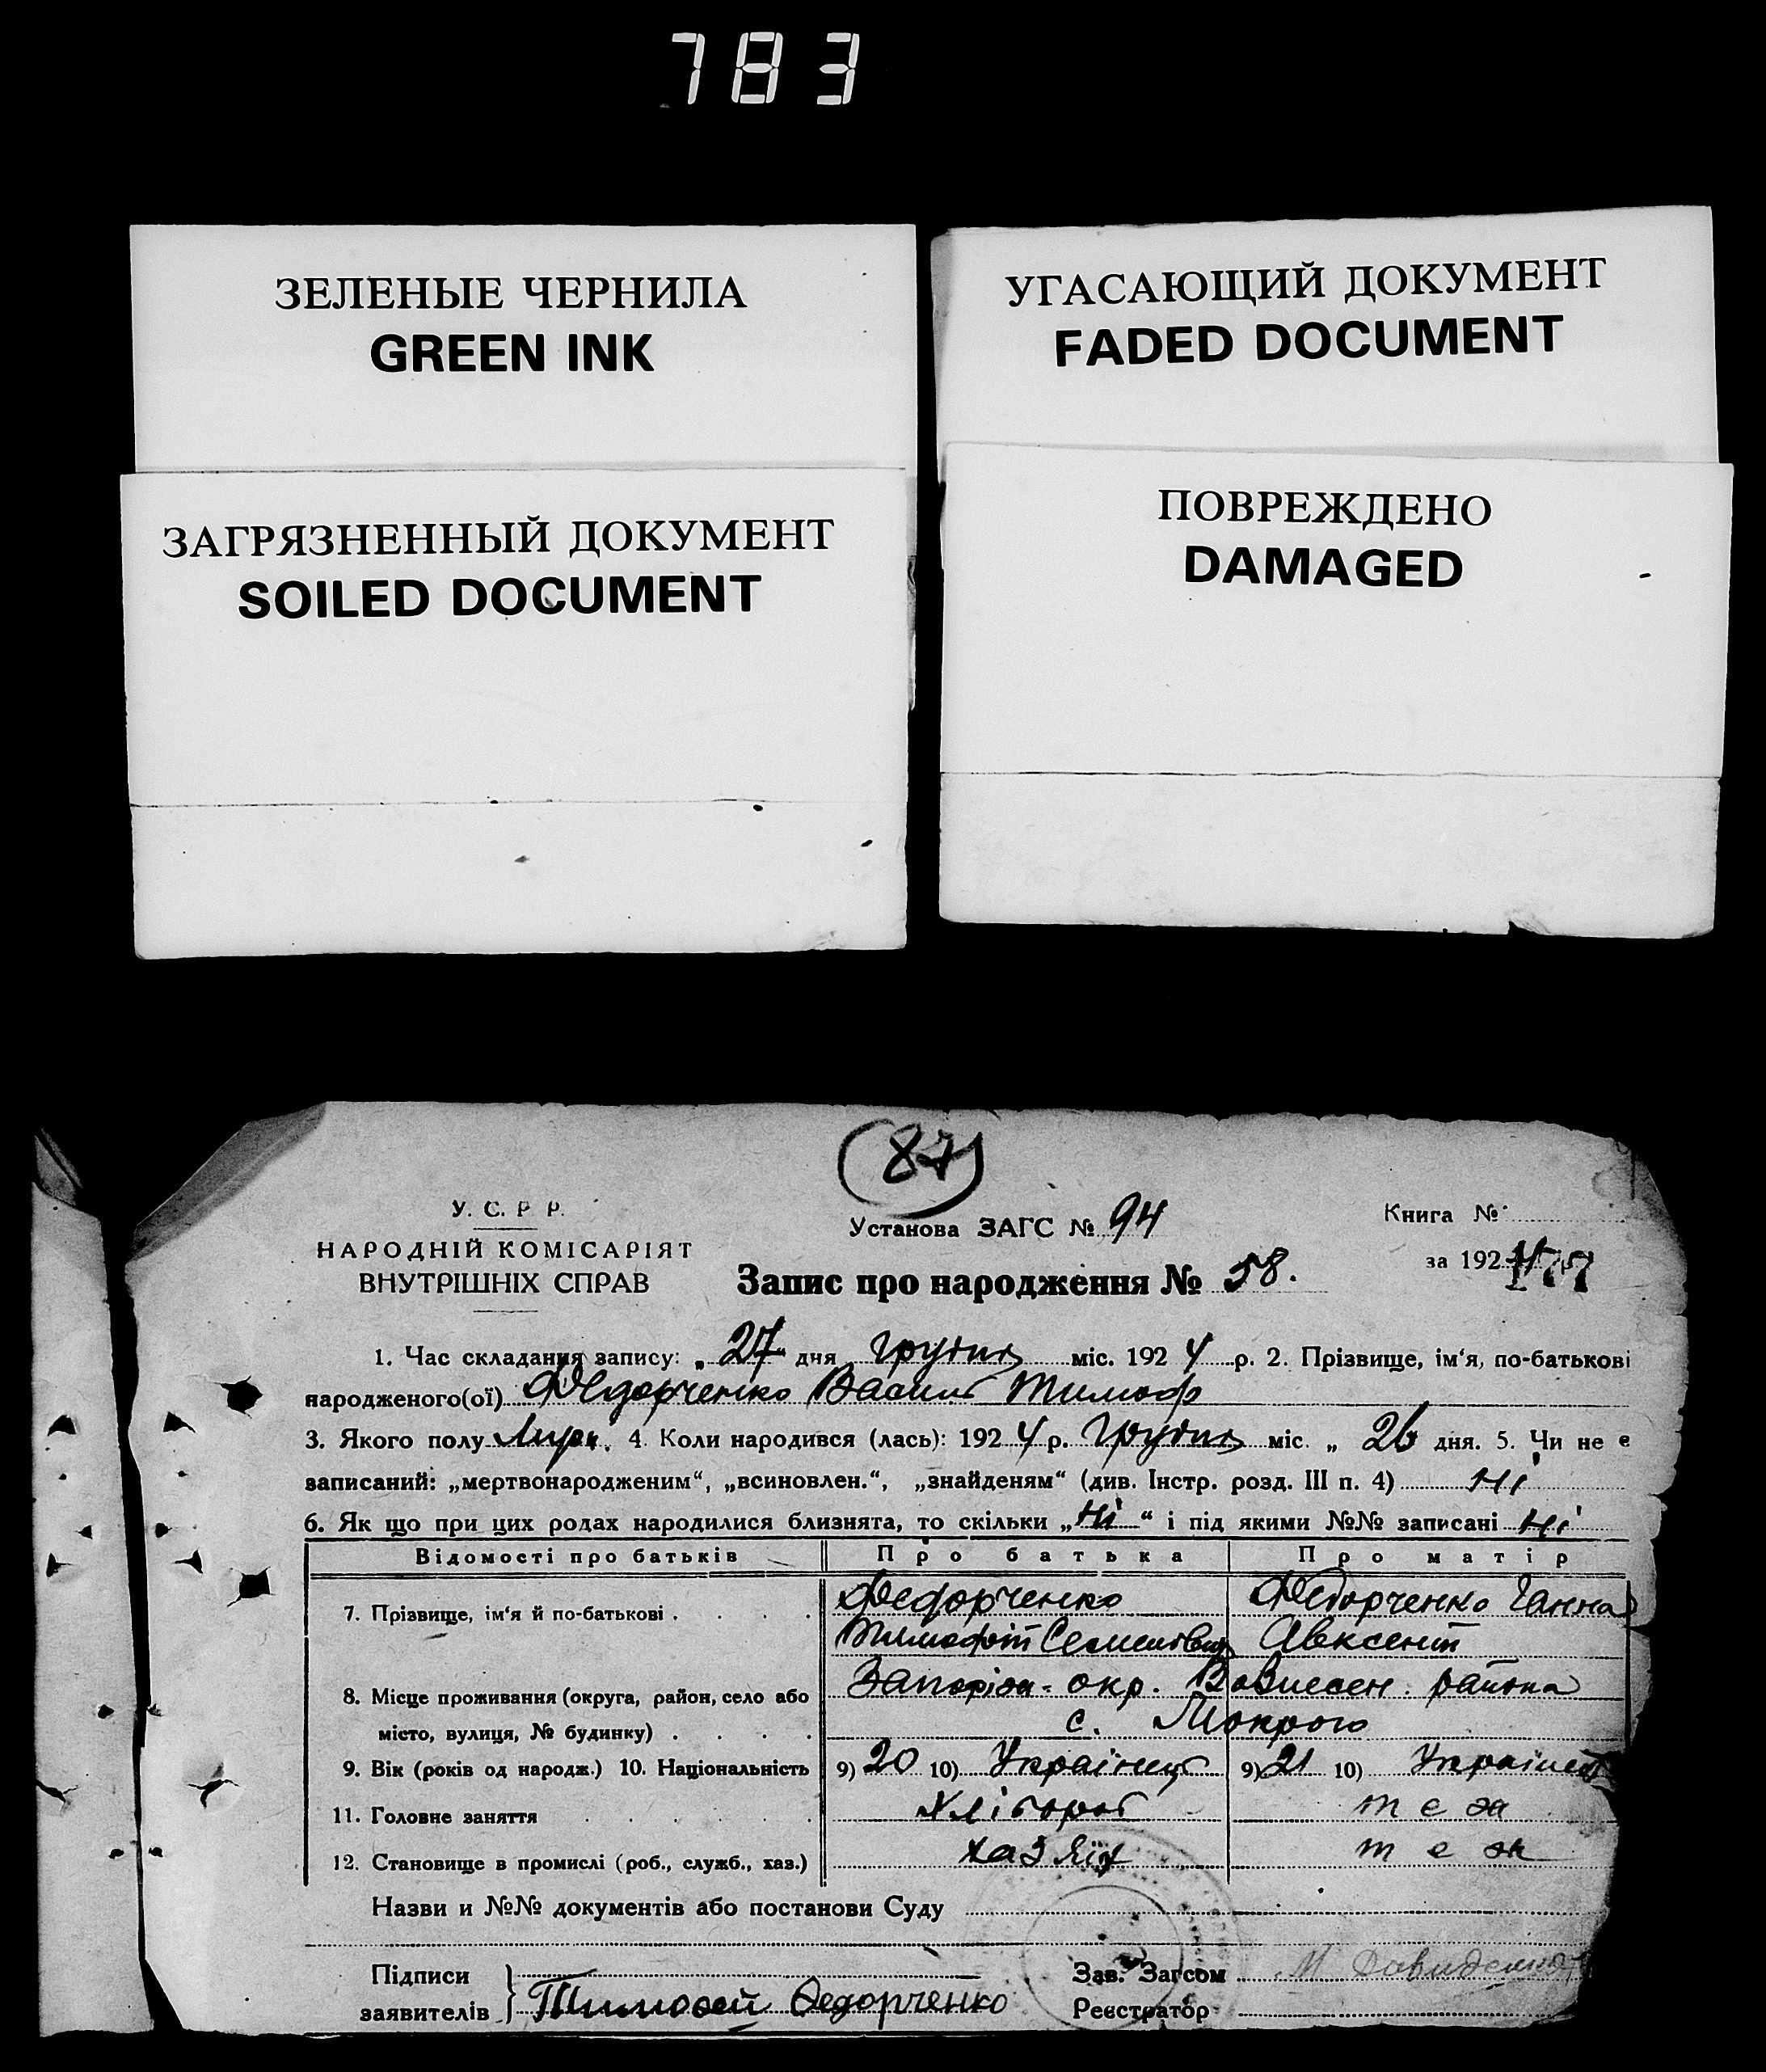 783
ЗЕЛЕНЫЕ ЧЕРНИЛА
GREEN INK
УГАСАЮЩИЙ ДОКУМЕНТ
FADED DOCUMENT
ЗАГРЯЗНЕННЫЙ ДОКУМЕНТ
SOILED DOCUMENT
ПОВРЕЖДЕНО
DAMAGED
87
У. С. Р. Р.
НАРОДНІЙ КОМІСАРІЯТ
ВНУТРІШНІХ СПРАВ
Установа ЗАГС № 94
Запис про народження № 58.
Книга №
за 1924
177
1. Час складання запису: „27“ дня грудня міс. 1924 р. 2. Прізвище, ім‘я, по-батькові
народженого(ої) Федорченко Василь Тимоф
3. Якого полу 4. Коли народився (лась): 1924 р. Грудня міс. „ 26 дня. 5. Чи не є
записаний: „мертвонародженим“, „всиновлен.“, „знайденям“ (див. Інстр. розд. III п. 4) Ні
6. Як що при цих родах народилися близнята, то скільки „Ні“ і під якими №№ записані Ні
Відомості про батьків Про батька Про матір
7. Прізвище, ім‘я й по-батькові . . . . Федорченко Федорченко Ганна
Тимофій Семенович Авксент
8. Місце проживання (округа, район, село або Запоріж. окр. Вовнесен. района
місто, вулиця, № будинку) . . . . с. Мокрого
9. Вік (років од народж.) 10. Національність 9) 20 10) Українець 9) 21 10)
11. Головне заняття . . . . . Хлібороб теж
12. Становище в промислі (роб., служб., хаз.) хазяїн теж
Назви и №№ документів або постанови Суду
Підписи
заявителів } Тимофей Федорченко
Зав. Загсом М Давиденко
Реєстратор